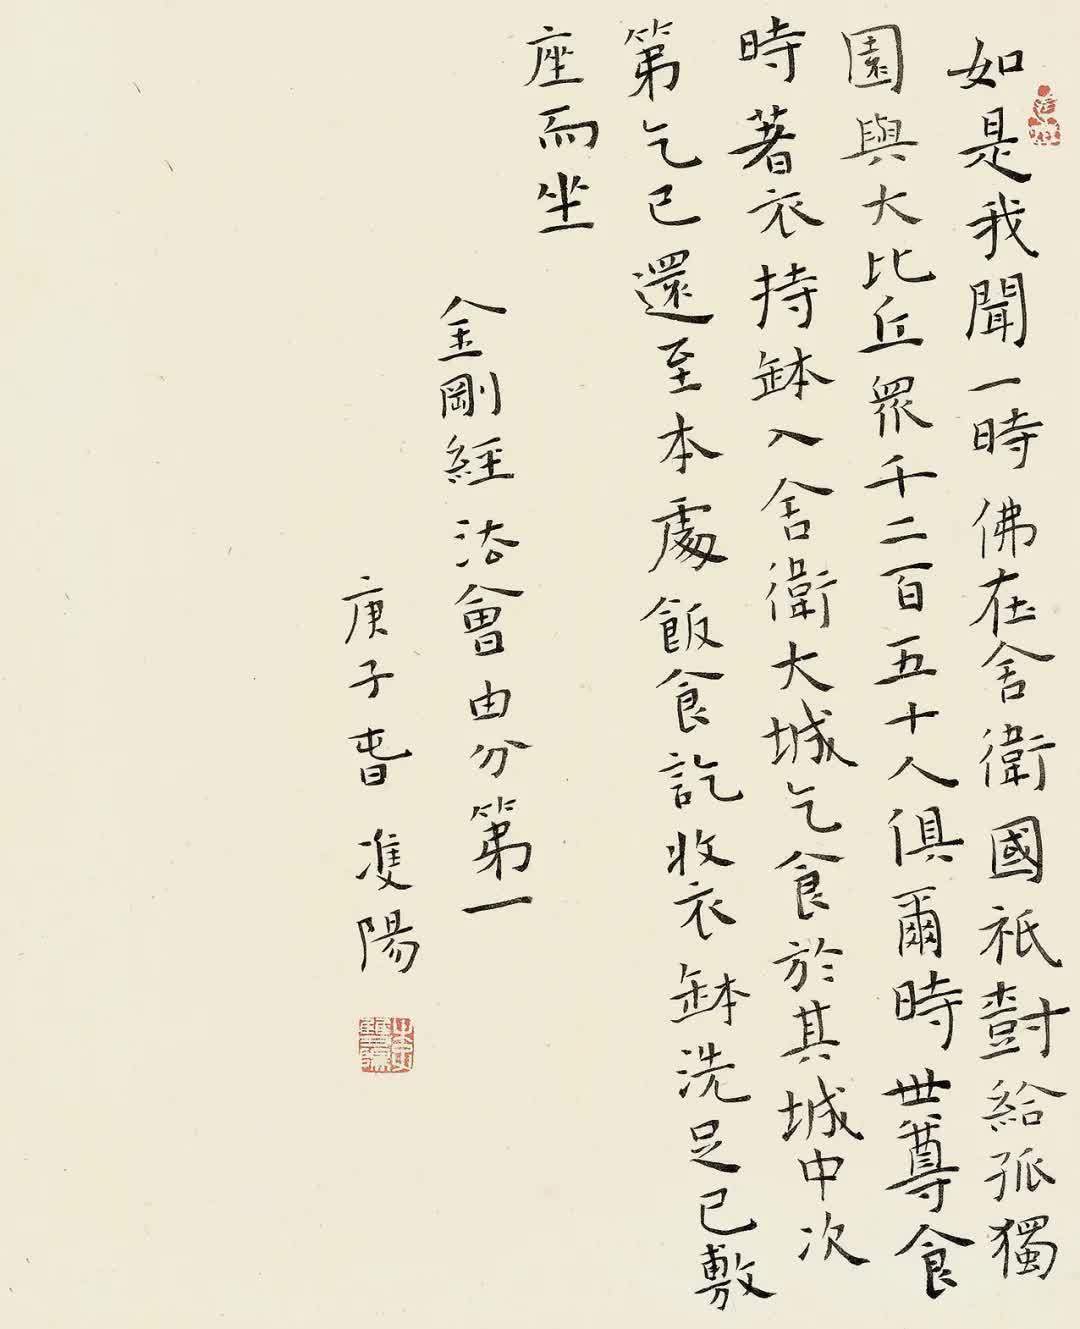 如是我聞一時佛在舍衛國祇樹給孤獨
園與大比丘眾千二百五十人俱爾時世尊食
時著衣持缽入舍衛大城乞食於其城中次
第乞已還至本處飯食訖收衣缽洗足已敷
座而坐
金剛經法會由分第一
庚子春雙陽